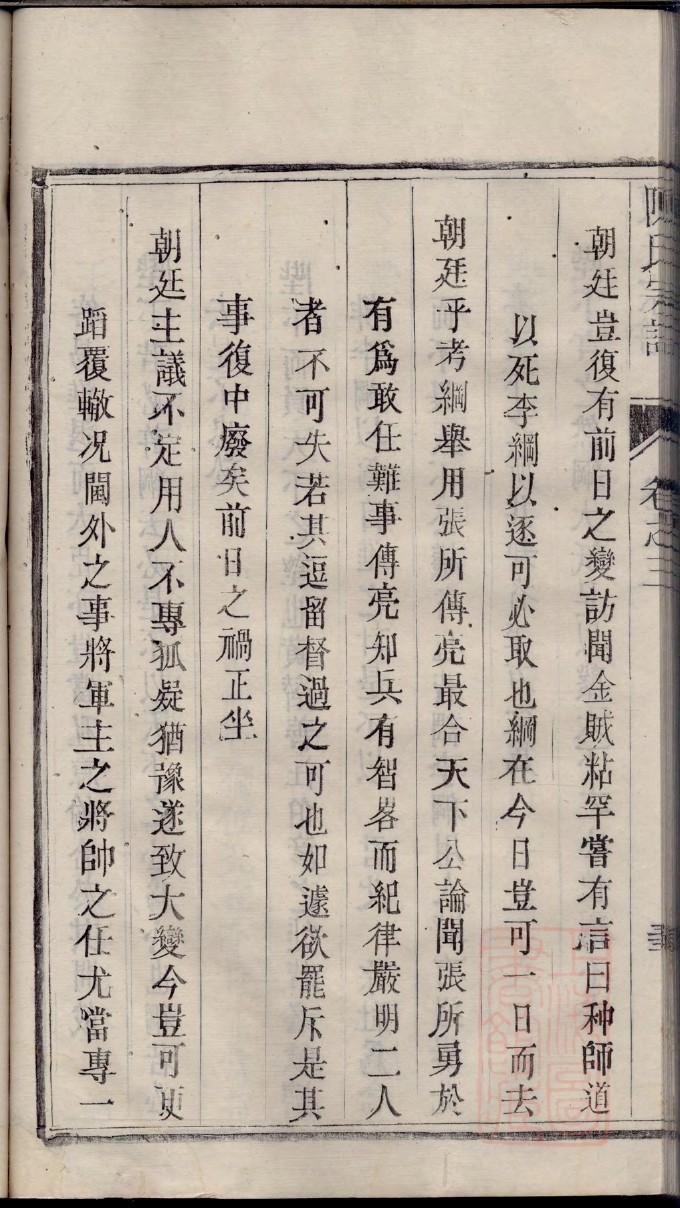 陳氏宗譜 卷之三
朝廷豈復有前日之變訪聞金賊粘罕嘗有言曰种師道
以死李綱以逐可必取也綱在今日豈可一日而去
朝廷乎考綱舉用張所傅亮最合天下公論聞張所勇於
有爲敢任難事傅亮知兵有智畧而紀律嚴明二人
者不可失若其逗留督過之可也如遽欲罷斥是其
事復中廢矣前日之禍正坐
朝廷主議不定用人不專狐疑猶豫遂致大變今豈可更
蹈覆轍况閫外之事將軍主之將帥之任尤當專一